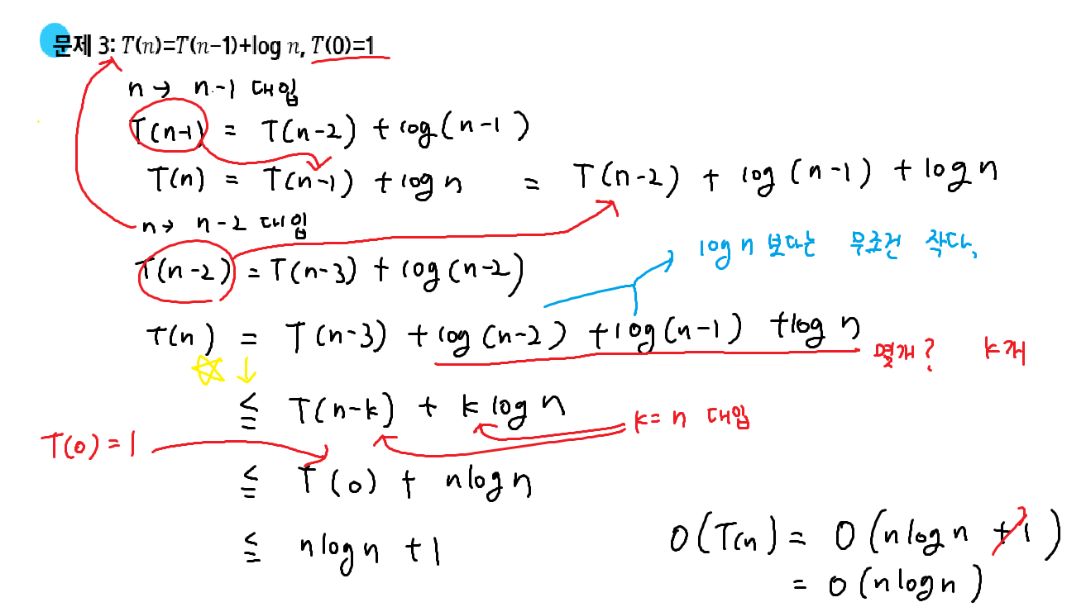 문제 3: T(n)=T(n-1)+log n, T(0)=1
n → n-1 대입
T(n-1) = T(n-2) + log(n-1)
T(n) = T(n-1) + log n = T(n-2) + log(n-1) + log n
n → n-2 대입
T(n-2) = T(n-3) + log(n-2)
log n 보다는 무조건 작다.
T(n) = T(n-3) + log(n-2) + log(n-1) + log n
몇개? k개
≤ T(n-k) + k log n
k = n 대입
T(0) = 1
≤ T(0) + n log n
≤ n log n + 1
O(T(n) = O(n log n + 1)
= O(n log n)